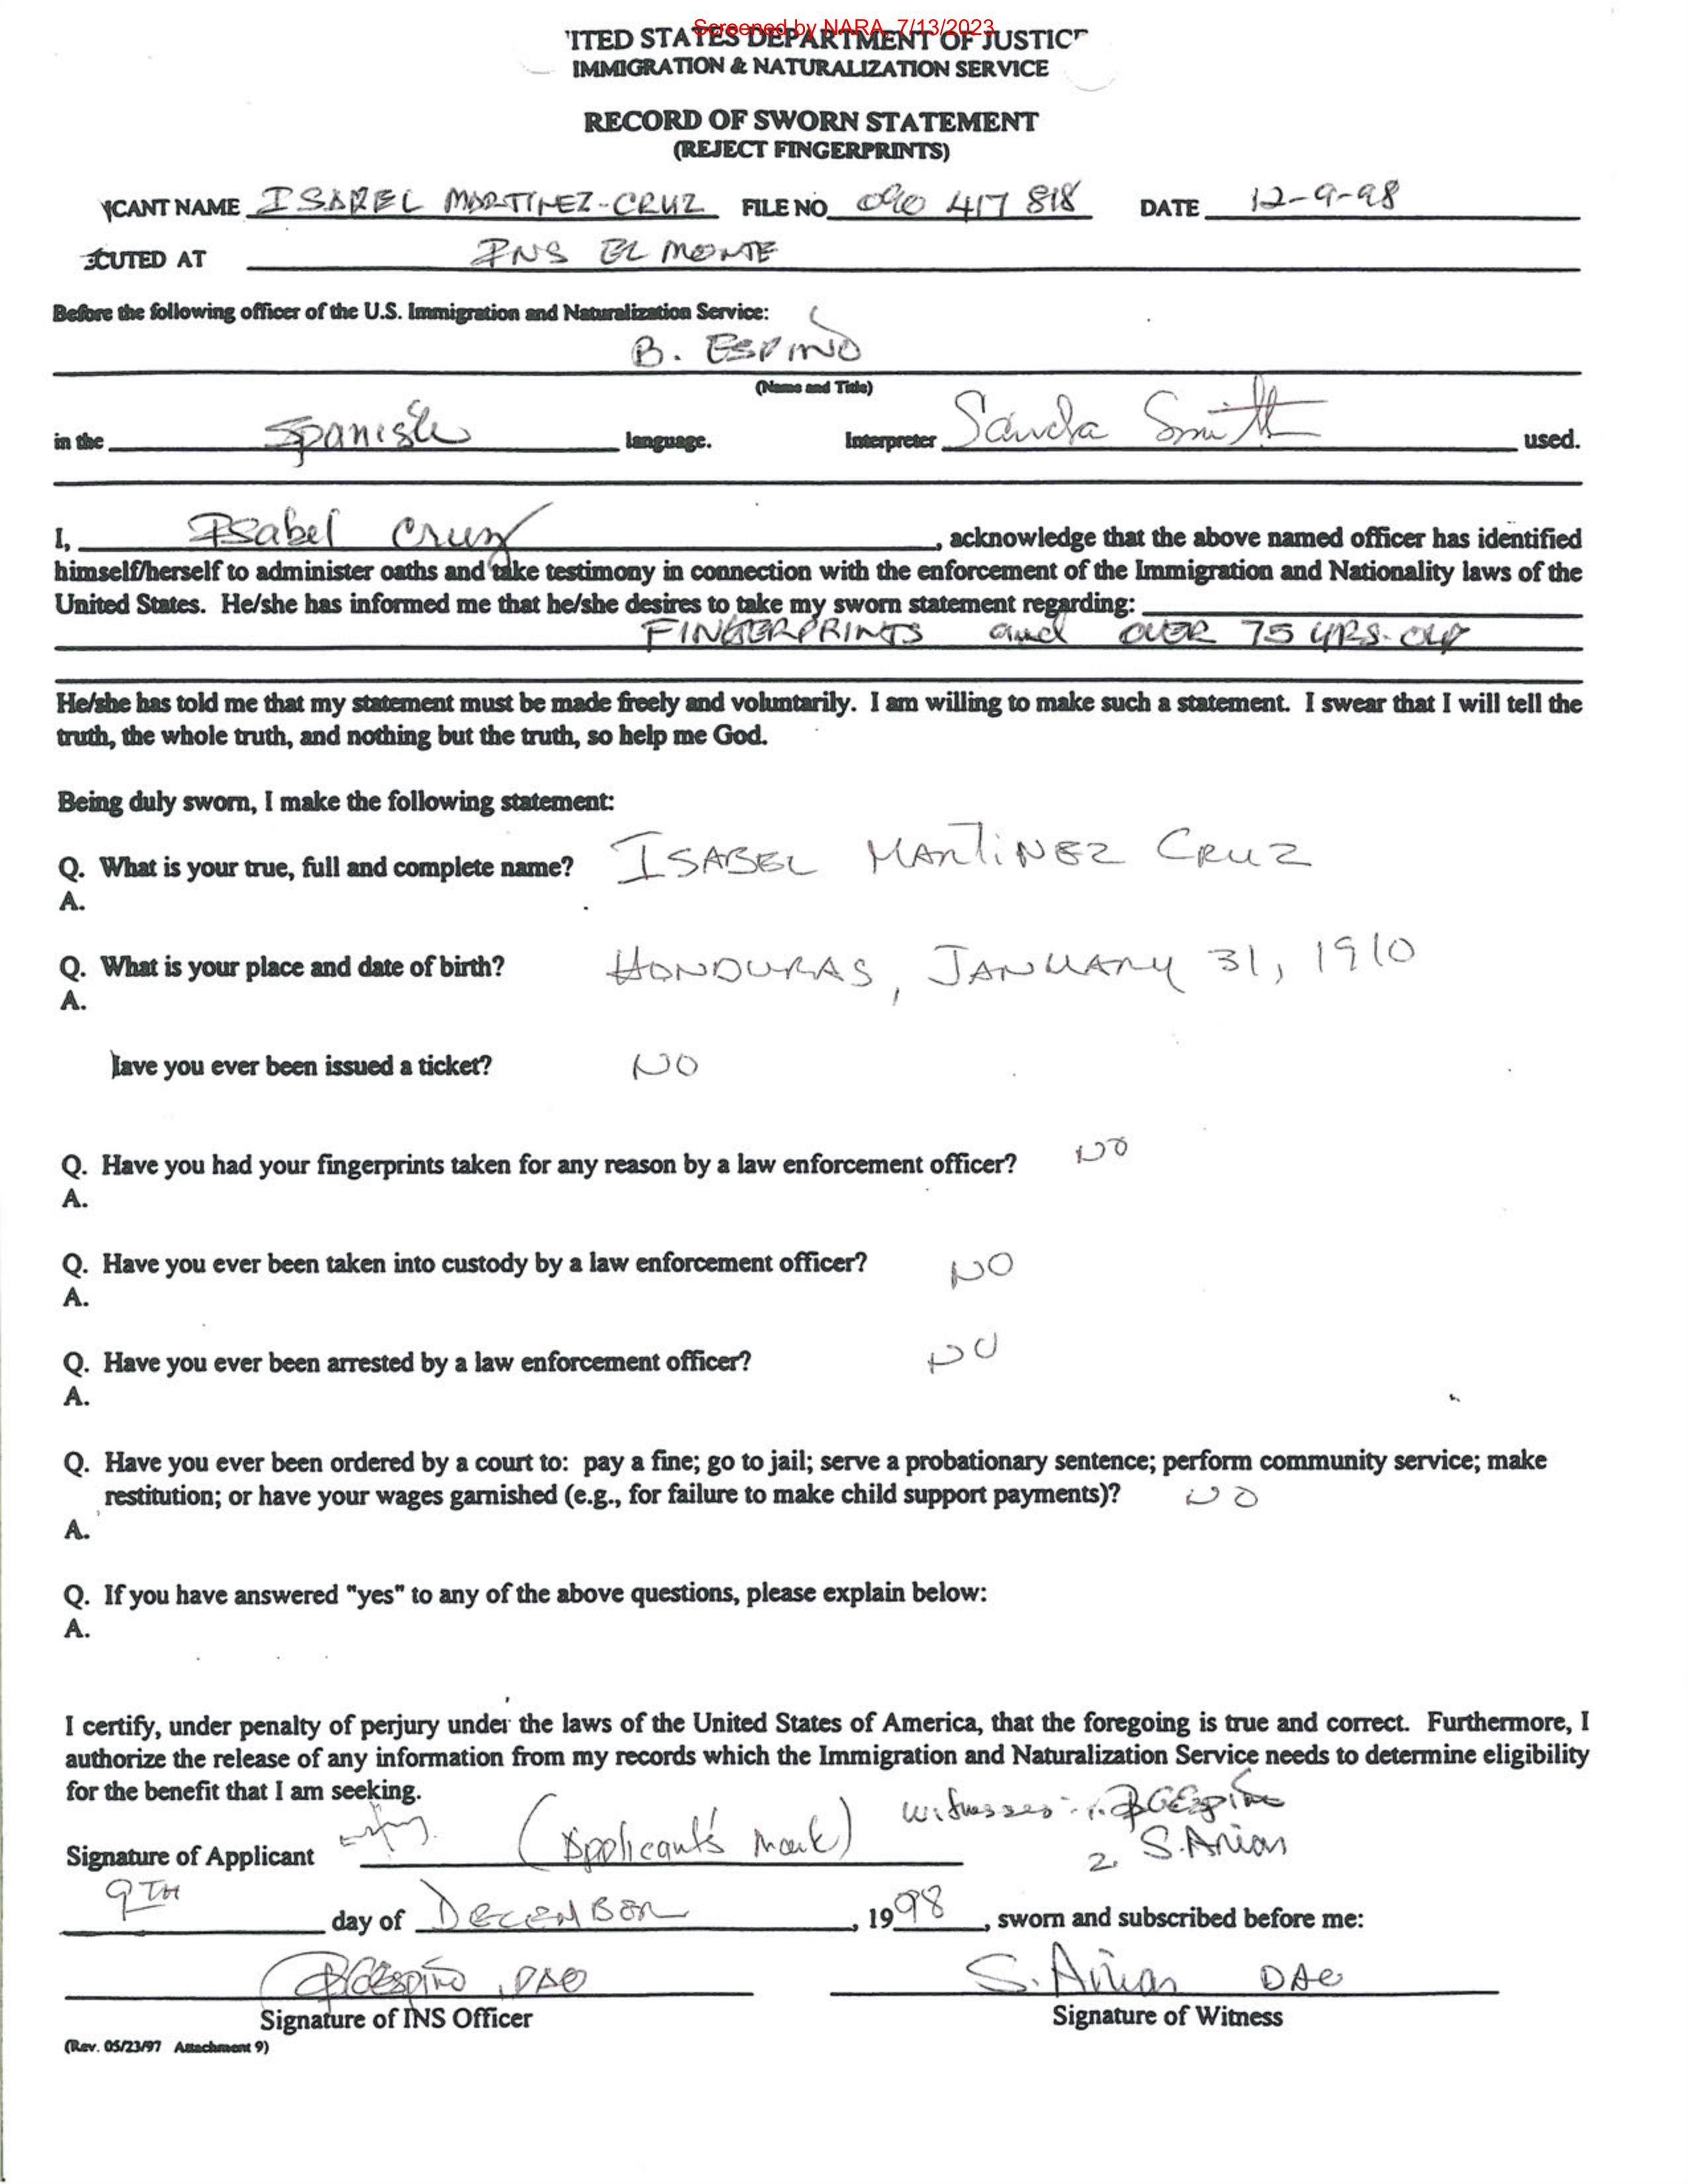 Screened by NARA, 7/13/2023
'ITED STATES DEPARTMENT OF JUSTICE
IMMIGRATION & NATURALIZATION SERVICE
RECORD OF SWORN STATEMENT
(REJECT FINGERPRINTS)
ICANT NAME ISABEL MARTINEZ-CRUZ FILE NO 090 417 818 DATE 12-9-98
CUTED AT INS EL MONTE
Before the following officer of the U.S. Immigration and Naturalization Service:
B. ESPINO
(Name and Title)
in the Spanish language. Interpreter Sandra Smith used.
I, Isabel Cruz, acknowledge that the above named officer has identified
himself/herself to administer oaths and take testimony in connection with the enforcement of the Immigration and Nationality laws of the
United States. He/she has informed me that he/she desires to take my sworn statement regarding:
FINGERPRINTS and OVER 75 YRS. OLD
He/she has told me that my statement must be made freely and voluntarily. I am willing to make such a statement. I swear that I will tell the
truth, the whole truth, and nothing but the truth, so help me God.
Being duly sworn, I make the following statement:
Q. What is your true, full and complete name? ISABEL MARTINEZ CRUZ
A.
Q. What is your place and date of birth? HONDURAS, JANUARY 31, 1910
A.
lave you ever been issued a ticket? NO
Q. Have you had your fingerprints taken for any reason by a law enforcement officer? NO
A.
Q. Have you ever been taken into custody by a law enforcement officer? NO
A.
Q. Have you ever been arrested by a law enforcement officer? NO
A.
Q. Have you ever been ordered by a court to: pay a fine; go to jail; serve a probationary sentence; perform community service; make
restitution; or have your wages garnished (e.g., for failure to make child support payments)? NO
A.
Q. If you have answered "yes" to any of the above questions, please explain below:
A.
I certify, under penalty of perjury under the laws of the United States of America, that the foregoing is true and correct. Furthermore, I
authorize the release of any information from my records which the Immigration and Naturalization Service needs to determine eligibility
for the benefit that I am seeking.
Signature of Applicant (Applicant's Mark) Witnesses: 1. BGEspino
2. S. Arias
9TH day of DECEMBER, 1998, sworn and subscribed before me:
BGEspino, DAO S. Arias DAO
Signature of INS Officer Signature of Witness
(Rev. 05/23/97 Attachment 9)